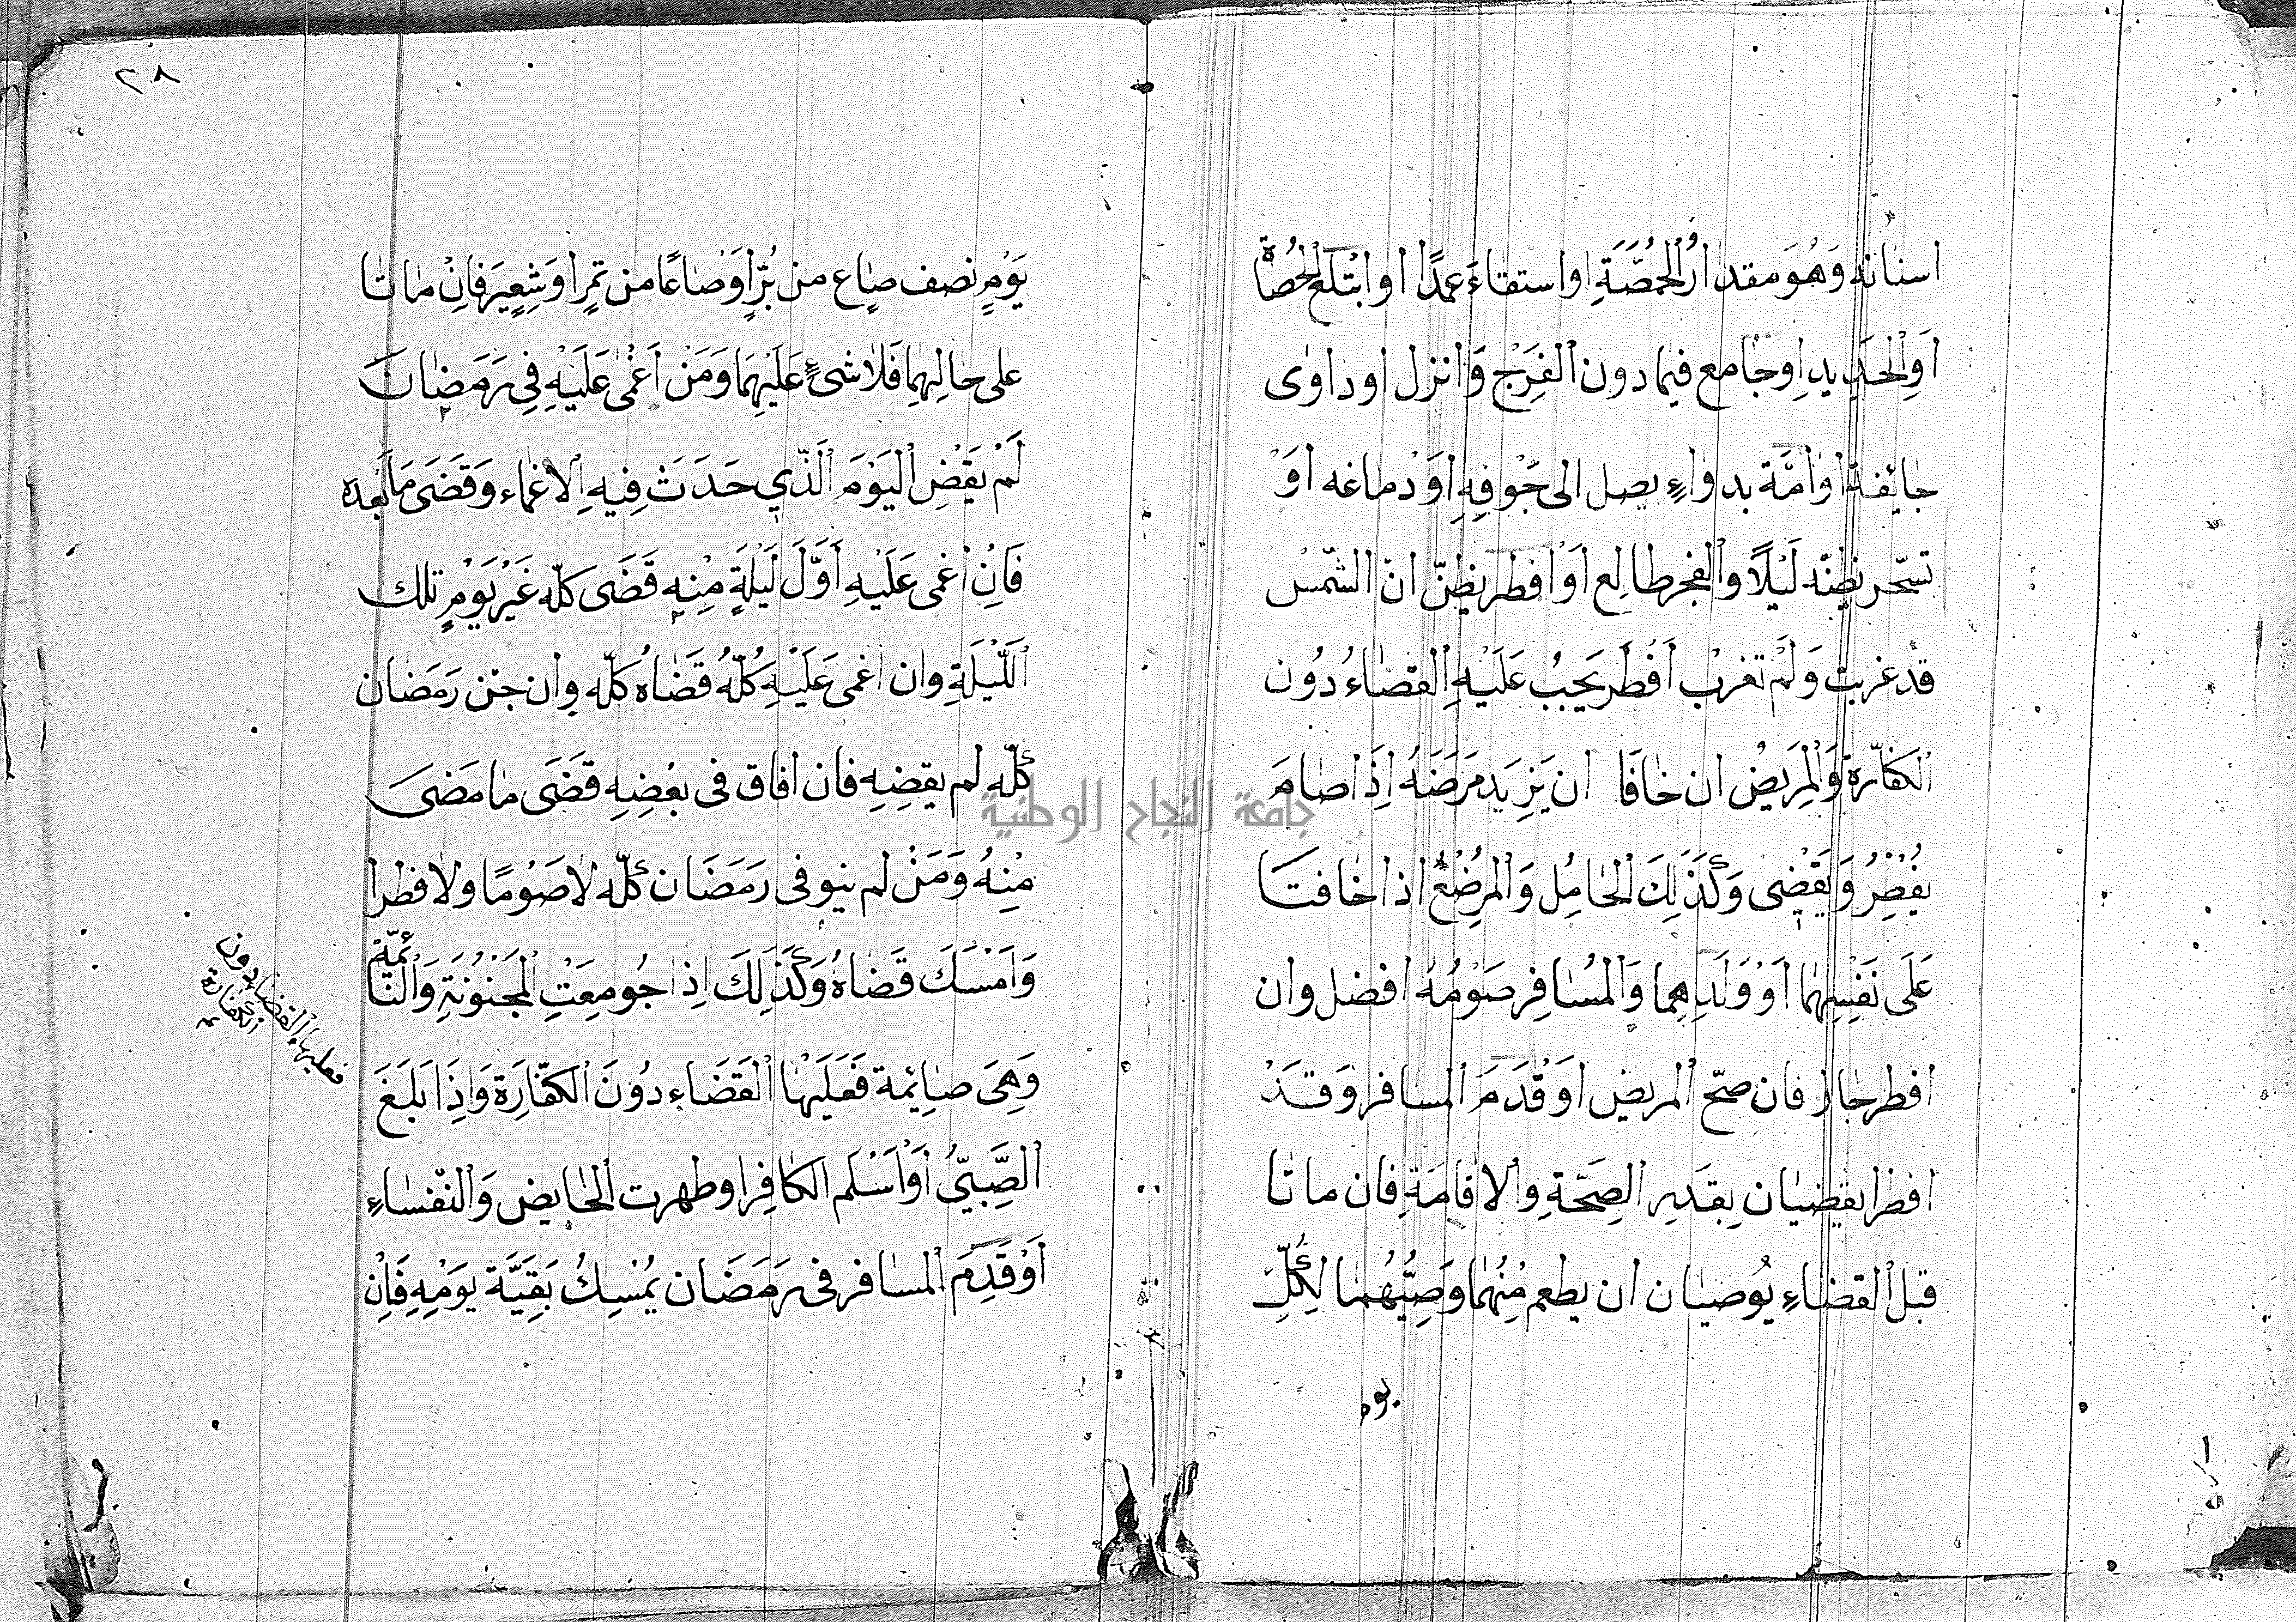 اسنانه وَهُوَ مقدارُ الحُمُّصَّةِ او استقاءَ عمدًا او ابْتَلَعَ الحُصَاة
اَوِ الحَدِيدِ اِو جَامع فيما دون الفَرجِْ وَانزل او داوى
جايُفةً اَوْ امَّة بدواءٍ يصل الى جَوْفِهِ اَوْ دماغه اَوْ
تسحّر يظنّه لَيْلًا والفجر طالِع اَوْ افطر يظنّ انّ الشّمْسْ
قد غربت وَلَمْ تغربْ اَفْطَر يَجِبُ عَلَيْهِ القضاءُ دُون
الكفّارة وَالمرِيضُ ان خافَا ان يَزِيدَ مَرَضَهُ اِذَا صامَ
يفْطِرُ وَيَقْضِى وَكَذَلِكَ الحَامِل وَالمرضِعُ اذا خَافتَا
عَلَى نَفْسِهِمَا اَوْ وَلَدِاهِما وَالمُسَافِر صَوْمُهُ افضل وان
افطر جاز فان صحّ المريض او قْدَمَ المسافر وَقَدْ
افطرا يقضيان بِقَدرِ الصِحَّةِ والاقَامَةِ فان ماتا
قبل القضاءِ يُوصيان ان يطعم مُنْهما وَصِيُّهُمَا لِكُلِّ
يوم
٢٨
يَوْمٍ نصف صاعٍ من بُرٍّ اَوْ صَاعًا من تمرٍ او شِعِيَر فَاِنْ ماتا
على حَالِهِمَا فَلَا شىءٌ عَلَيْهِمَا وَمَنْ اَغْمَىٰ عَلَيْهِ فِى رَمَضَانَ
لَمْ يَقْضِ اليَوْمَ الَّذِي حَدَثَ فِيهِ الاغماء وَقَضَى مَا بَعْده
فَاِنْ اغمى عَلَيْهِ اَوَّلَ لَيْلَةٍ مِنْهِ قَضَى كلّه غَيْر يَوْمِ تلك
اللَّيْلَةِ وان اغمى عَلَيْهِ كُلّهُ قَضَاهُ كلّه وان جنّ رَمَضان
كلّه لم يقضِهِ فان افاق فى بعْضِهِ قَضَى ما مَضى
مِنْهُ وَمَنْ لم ينو فى رَمَضَان كلّه لا صَوْمًا ولا فطرا
وَامْسَكَ قَضَاهُ وَكَذَلِكَ اِذَا جُومِعَتِ المَجْنُونَةِ وَالنّائمّة
وَهِىَ صايمة فَعَلَيْهَا القَضَاء دُونَ الكفّارَة وَاِذَا بَلَغَ
الصَّبِيّ اَوْ اَسْلَم الكافِر او طهرت الحايض وَالنّفسَاءِ
اَوْ قَدِمَ المسافر فى رمَضَان يُمْسِكُ بَقِيَّةَ يوَمْهِ فَاِنْ
فعليهما القضاء دون
الكفارة
جامعة النجاح الوطنية